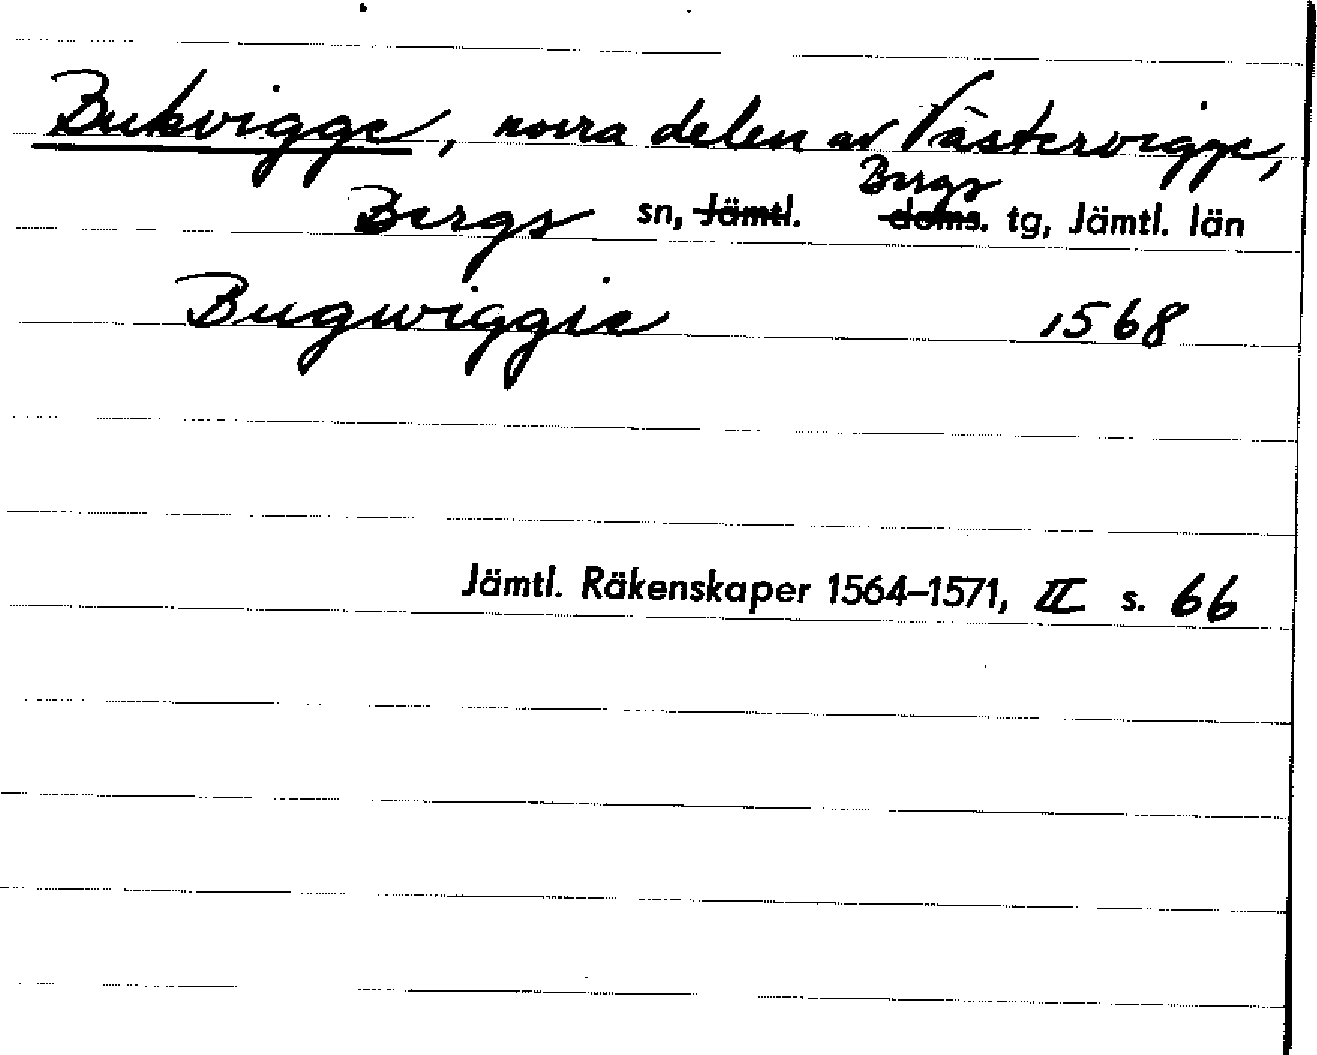 Bukvigge, norra delen av Västervigge,
Bergs sn, Jämtl. Bergs doms. tg, Jämtl. län
Bugwiggie 1568
Jämtl. Räkenskaper 1564–1571, II s. 66